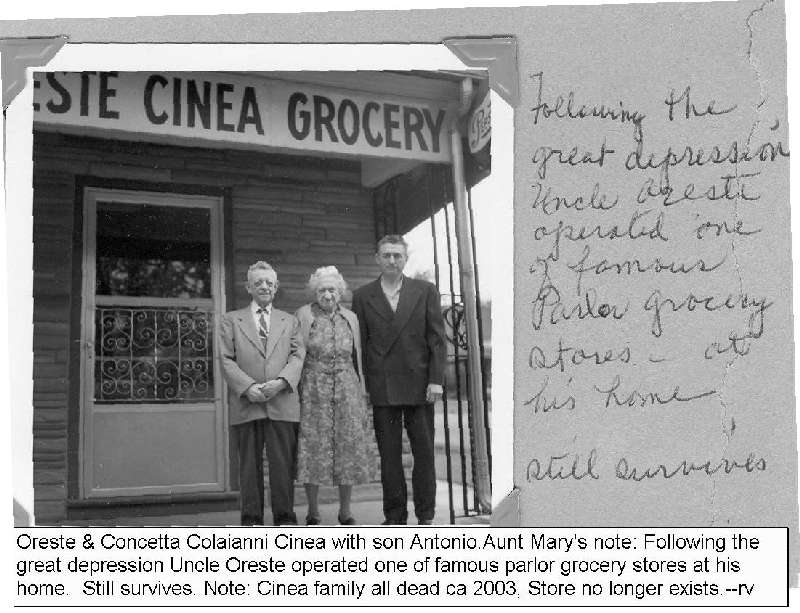 ESTE CINEA GROCERY
Following the
great depression
Uncle Oreste
operated one
of famous
Parlor grocery
stores - at
his home
still survives
Oreste & Concetta Colaianni Cinea with son Antonio.Aunt Mary's note: Following the
great depression Uncle Oreste operated one of famous parlor grocery stores at his
home.  Still survives. Note: Cinea family all dead ca 2003, Store no longer exists.--rv